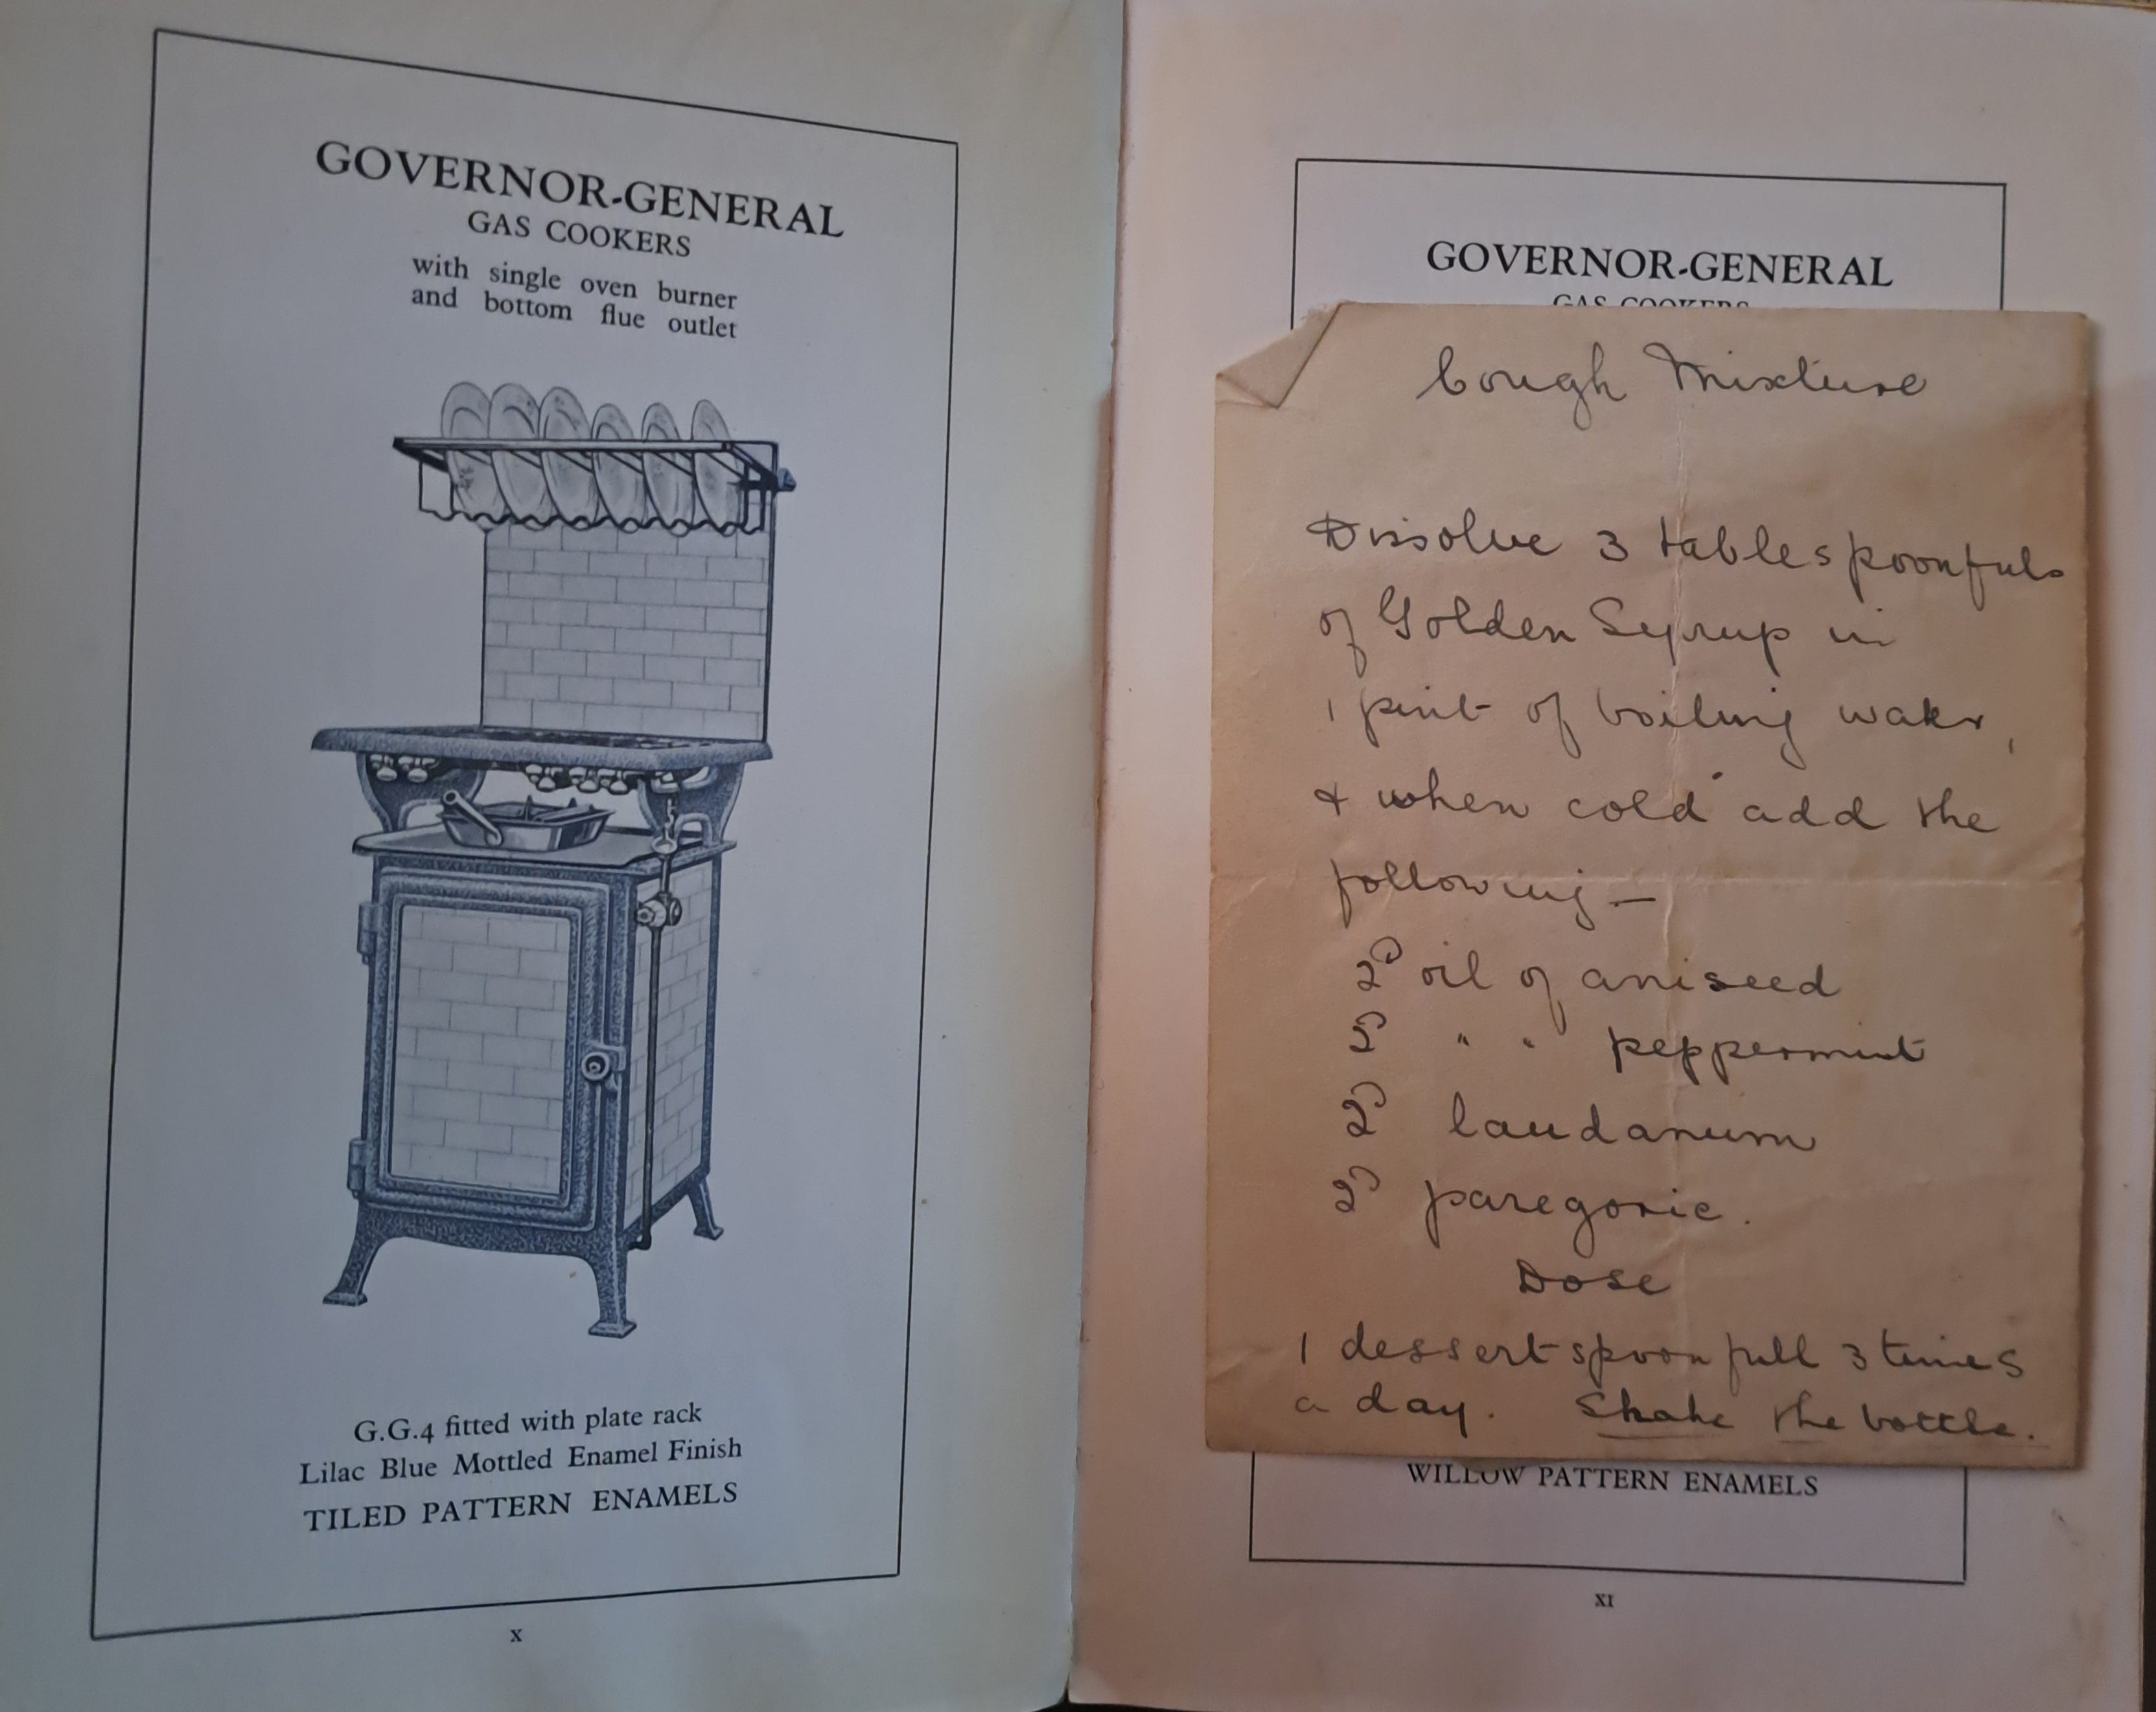 GOVERNOR-GENERAL
GAS COOKERS
with single oven burner
and bottom flue outlet
G.G.4 fitted with plate rack
Lilac Blue Mottled Enamel Finish
TILED PATTERN ENAMELS
x
GOVERNOR-GENERAL
GAS COOKERS
Cough Mixture
Dissolve 3 tablespoonfuls
of Golden Syrup in
1 pint of boiling water,
& when cold add the
following —
2ᴰ oil of aniseed
2ᴰ " " peppermint
2ᴰ laudanum
2ᴰ paregoric.
Dose
1 dessertspoonfull 3 times
a day. Shake the bottle.
WILLOW PATTERN ENAMELS
xi